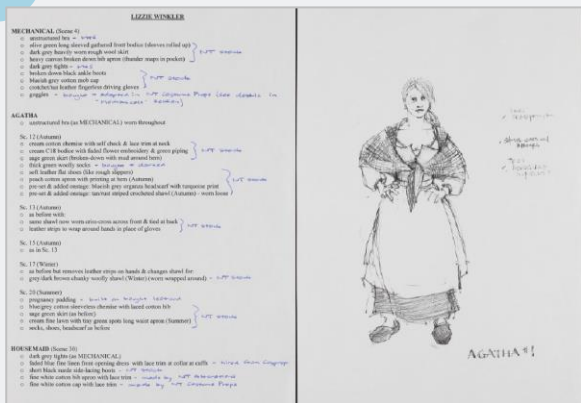 LIZZIE WINKLER
MECHANICAL (Scene 4)
unstructured bra - M&S
olive green long sleeved gathered front bodice (sleeves rolled up)
dark grey heavily worn rough wool skirt
heavy canvas broken down bib apron (thunder snaps in pocket)
NT Stock
dark grey tights - M&S
broken down black ankle boots
blueish grey cotton mob cap
crotchet/tan leather fingerless driving gloves
NT Stock
goggles - bought & adapted in NT Costume Props (see details in
AGATHA
unstructured bra (as MECHANICAL) worn throughout
Sc. 12 (Autumn)
cream cotton chemise with self check & lace trim at neck
cream C18 bodice with faded flower embroidery & green piping
sage green skirt (broken-down with mud around hem)
NT Stock
thick green woolly socks - bought & dyed
soft leather flat shoes (like rough slippers)
pouch cotton apron with printing at hem (Autumn)
pre-set & added onstage: blueish grey organza headscarf with turquoise print
pre-set & added onstage: tan/rust striped crocheted shawl (Autumn) - worn loose
NT Stock
Sc. 13 (Autumn)
as before with:
same shawl now worn criss-cross across front & tied at back
leather strips to wrap around hands in place of gloves
NT Stock
Sc. 15 (Autumn)
as in Sc. 13
Sc. 17 (Winter)
as before but removes leather strips on hands & changes shawl for:
grey/dark brown chunky woolly shawl (Winter) (worn wrapped around) - NT Stock
Sc. 20 (Summer)
pregnancy padding - built on bought leotard
blue/grey cotton sleeveless chemise with laced cotton bib
sage green skirt (as before)
cream fine lawn with tiny green spots long waist apron (Summer)
socks, shoes, headscarf as before
NT Stock
HOUSEMAID (Scene 26)
dark grey tights (as MECHANICAL)
faded blue fine linen front opening dress with lace trim at collar & cuffs - hired from Cosprop
short black suede side-lacing boots - NT Stock
fine white cotton bib apron with lace trim - made by NT
fine white cotton cap with lace trim - made by NT Costume Props
AGATHA #1